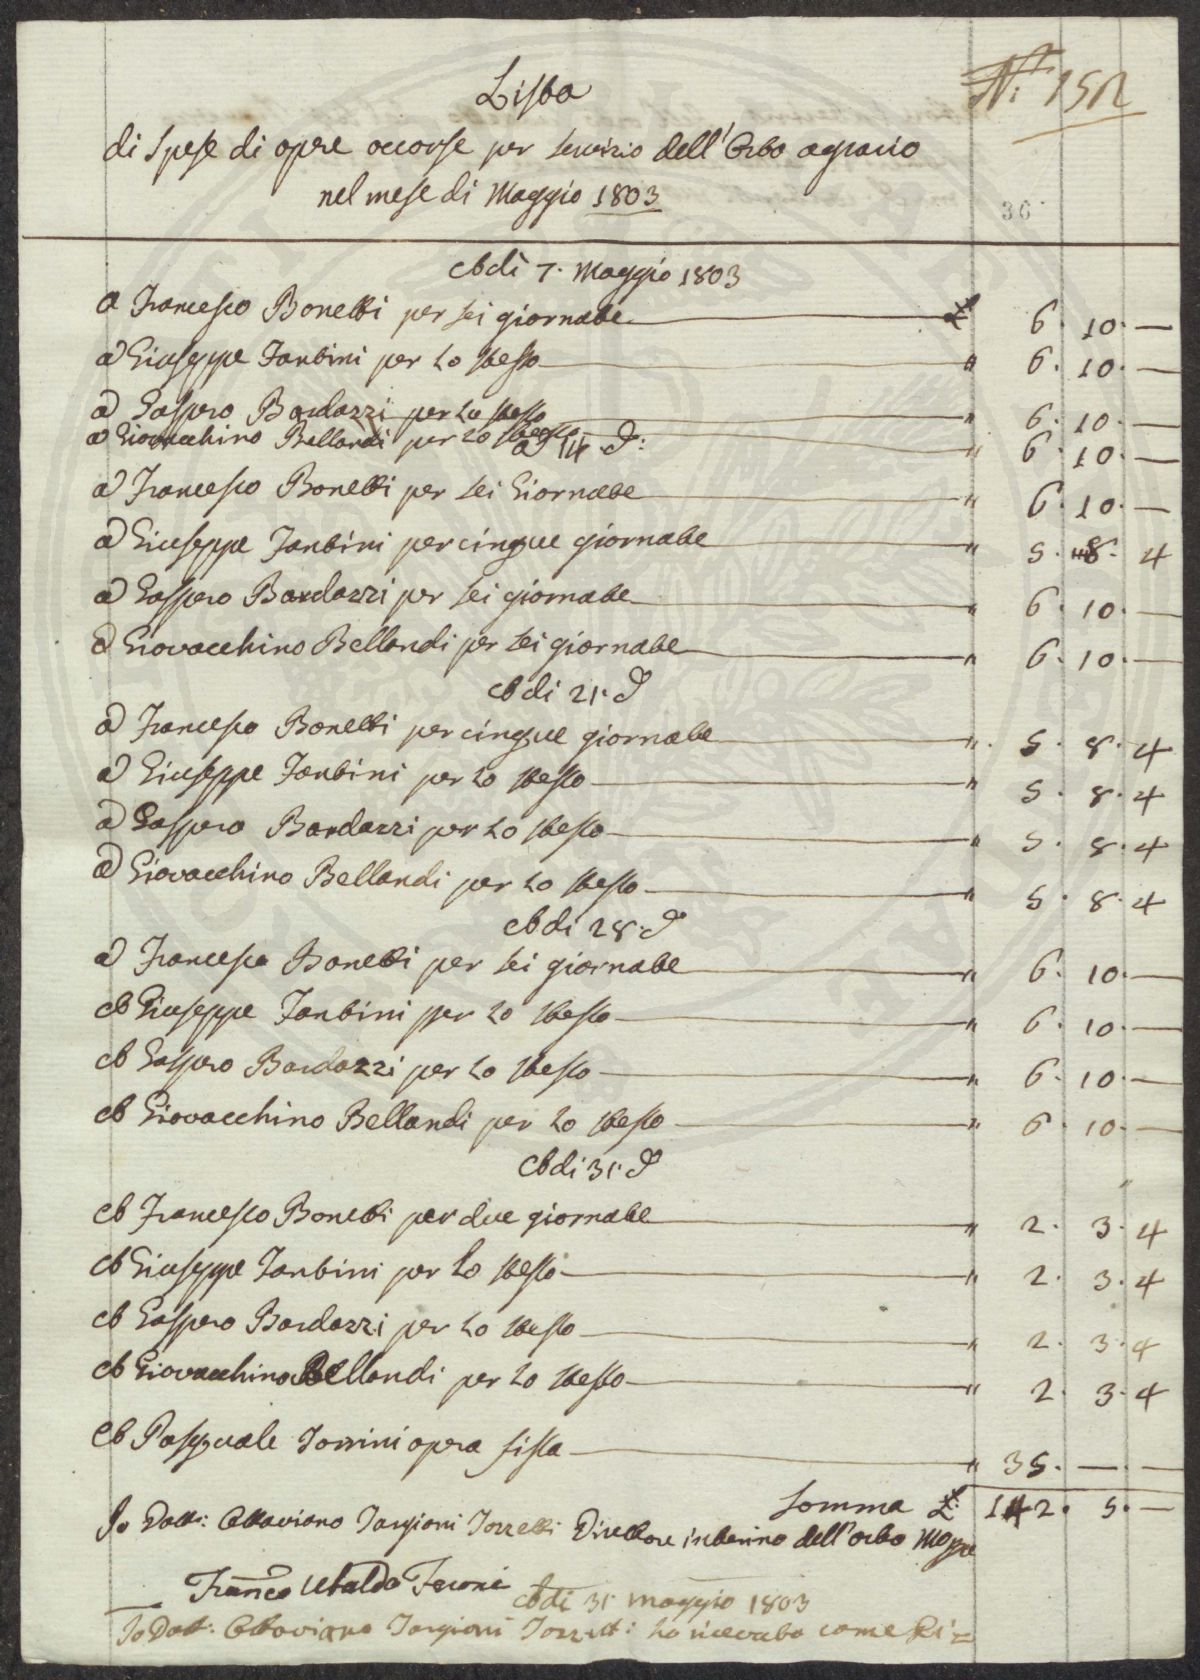 N.° 152
Lista
di Spese di opere occorse per servizio dell'Orto agrario
nel mese di Maggio 1803
36
Adi 7. Maggio 1803
a Francesco Bonetti per sei giornate £ 6. 10. —
a Giuseppe Tantini per lo stesso " 6. 10. —
a Gaspero Bardazzi per lo stesso " 6. 10. —
a Giovacchino Bellandi per lo stesso " 6. 10. —
a 14 d:
a Francesco Bonetti per sei Giornate " 6. 10. —
a Giuseppe Tantini per cinque giornate " 5. 8. 4
a Gaspero Bardazzi per sei giornate " 6. 10. —
a Giovacchino Bellandi per sei giornate " 6. 10. —
Adi 21. d
a Francesco Bonetti per cinque giornate " 5. 8. 4
a Giuseppe Tantini per lo stesso " 5. 8. 4
a Gaspero Bardazzi per lo stesso " 5. 8. 4
a Giovacchino Bellandi per lo stesso " 5. 8. 4
Adi 28. d
a Francesco Bonetti per sei giornate " 6. 10. —
A Giuseppe Tantini per lo stesso " 6. 10. —
A Gaspero Bardazzi per lo stesso " 6. 10. —
A Giovacchino Bellandi per lo stesso " 6. 10. —
Adi 31. d
A Francesco Bonetti per due giornate " 2. 3. 4
A Giuseppe Tantini per lo stesso " 2. 3. 4
A Gaspero Bardazzi per lo stesso " 2. 3. 4
A Giovacchino Bellandi per lo stesso " 2. 3. 4
A Pasquale Torrini opera fissa " 35. — —
Somma £ 142. 5. —
Io Dott: Ottaviano Targioni Tozzetti Direttore interino dell'orto
Franco Ubaldo Feroni
Adi 31 maggio 1803
Io Dott: Ottaviano Targioni Tozzetti ho ricevuto come Di=